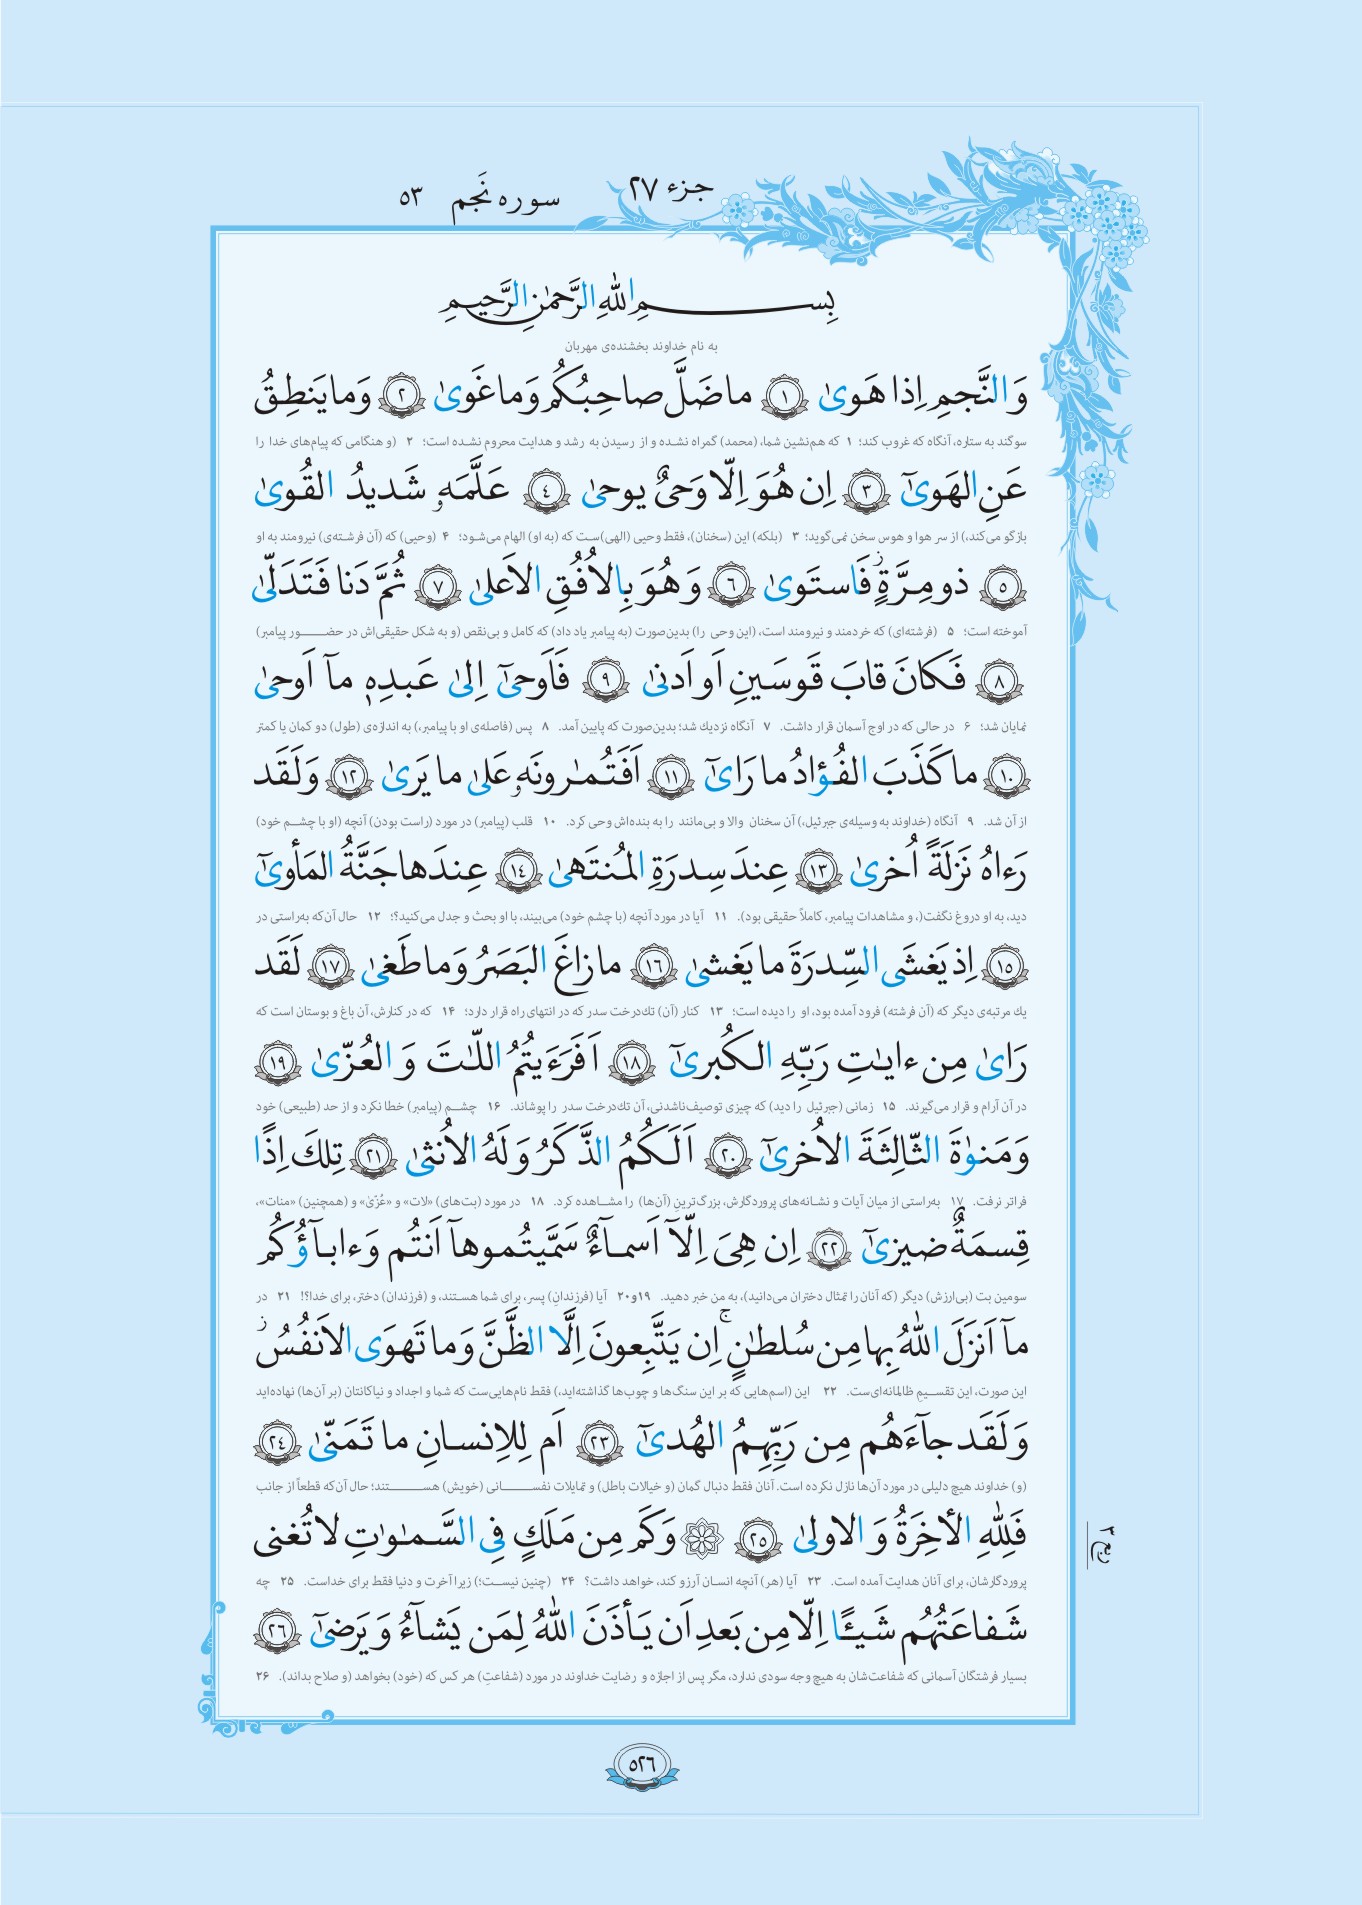 جزء ۲۷
سوره نَجم ۵۳
بِسمِ اللهِ الرَّحمٰنِ الرَّحیمِ
به نام خداوند بخشنده‌ی مهربان
وَالنَّجمِ اِذا هَویٰ ١ ما ضَلَّ صاحِبُکُم وَما غَویٰ ٢ وَما یَنطِقُ
سوگند به ستاره، آنگاه که غروب کند؛ ۱ که هم‌نشین شما، (محمد) گمراه نشده و از رسیدن به رشد و هدایت محروم نشده است؛ ۲ (و هنگامی که پیام‌های خدا را
عَنِ الهَویٰٓ ٣ اِن هُوَ اِلّا وَحیٌ یوحیٰ ٤ عَلَّمَهٗ شَدیدُ القُویٰ
بازگو می‌کند،) از سر هوا و هوس سخن نمی‌گوید؛ ۳ (بلکه) این (سخنان)، فقط وحیی (الهی)ست که (به او) الهام می‌شود؛ ۴ (وحیی) که (آن فرشته‌ی) نیرومند به او
٥ ذو مِرَّةٍ فَاستَویٰ ٦ وَهُوَ بِالاُفُقِ الاَعلیٰ ٧ ثُمَّ دَنا فَتَدَلّیٰ
آموخته است؛ ۵ (فرشته‌ای) که خردمند و نیرومند است، (این وحی را) بدین‌صورت (به پیامبر یاد داد) که کامل و بی‌نقص (و به شکل حقیقی‌اش در حضور پیامبر)
٨ فَکانَ قابَ قَوسَینِ اَو اَدنیٰ ٩ فَاَوحیٰٓ اِلیٰ عَبدِهٖ مآ اَوحیٰ
نمایان شد؛ ۶ در حالی که در اوج آسمان قرار داشت. ۷ آنگاه نزدیك شد؛ بدین‌صورت که پایین آمد. ۸ پس (فاصله‌ی او با پیامبر،) به اندازه‌ی (طول) دو کمان یا کمتر
١٠ ما کَذَبَ الفُؤادُ ما رَایٰٓ ١١ اَفَتُمٰرونَهٗ عَلیٰ ما یَریٰ ١٢ وَلَقَد
از آن شد. ۹ آنگاه (خداوند به وسیله‌ی جبرئیل،) آن سخنان والا و بی‌مانند را به بنده‌اش وحی کرد. ۱۰ قلب (پیامبر) در مورد (راست بودن) آنچه (او با چشم خود)
رَءاهُ نَزلَةً اُخریٰ ١٣ عِندَ سِدرَةِ المُنتَهیٰ ١٤ عِندَها جَنَّةُ المَأویٰٓ
دید، به او دروغ نگفت(، و مشاهدات پیامبر، کاملاً حقیقی بود). ۱۱ آیا در مورد آنچه (با چشم خود) می‌بیند، با او بحث و جدل می‌کنید؟؛ ۱۲ حال آن‌که به‌راستی در
١٥ اِذ یَغشَی السِّدرَةَ ما یَغشیٰ ١٦ ما زاغَ البَصَرُ وَما طَغیٰ ١٧ لَقَد
یك مرتبه‌ی دیگر که (آن فرشته) فرود آمده بود، او را دیده است؛ ۱۳ کنار (آن) تك‌درخت سدر که در انتهای راه قرار دارد؛ ۱۴ که در کنارش، آن باغ و بوستان است که
رَایٰ مِن ءایٰتِ رَبِّهِ الکُبریٰٓ ١٨ اَفَرَءَیتُمُ اللّٰتَ وَ العُزّیٰ ١٩
در آن آرام و قرار می‌گیرند. ۱۵ زمانی (جبرئیل را دید) که چیزی توصیف‌ناشدنی، آن تك‌درخت سدر را پوشاند. ۱۶ چشم (پیامبر) خطا نکرد و از حد (طبیعی) خود
وَمَنوٰةَ الثّالِثَةَ الاُخریٰٓ ٢٠ اَلَکُمُ الذَّکَرُ وَلَهُ الاُنثیٰ ٢١ تِلكَ اِذًا
فراتر نرفت. ۱۷ به‌راستی از میان آیات و نشانه‌های پروردگارش، بزرگ‌ترینِ (آن‌ها) را مشاهده کرد. ۱۸ در مورد (بت‌های) «لات» و «عُزّیٰ» و (همچنین) «منات»،
قِسمَةٌ ضیزیٰٓ ٢٢ اِن هِیَ اِلّآ اَسمآءٌ سَمَّیتُموهآ اَنتُم وَءابآؤُکُم
سومین بت (بی‌ارزش) دیگر (که آنان را تمثال دختران می‌دانید)، به من خبر دهید. ۱۹و۲۰ آیا (فرزندانِ) پسر، برای شما هستند، و (فرزندان) دختر، برای خدا؟! ۲۱ در
مآ اَنزَلَ اللهُ بِها مِن سُلطٰنٍ ۚ اِن یَتَّبِعونَ اِلَّا الظَّنَّ وَما تَهوَی الاَنفُسُ
این صورت، این تقسیمِ ظالمانه‌ای‌ست. ۲۲ این (اسم‌هایی که بر این سنگ‌ها و چوب‌ها گذاشته‌اید،) فقط نام‌هایی‌ست که شما و اجداد و نیاکانتان (بر آن‌ها) نهاده‌اید
وَلَقَد جآءَهُم مِن رَبِّهِمُ الهُدیٰٓ ٢٣ اَم لِلاِنسانِ ما تَمَنّیٰ ٢٤
(و) خداوند هیچ دلیلی در مورد آن‌ها نازل نکرده است. آنان فقط دنبال گمان (و خیالات باطل) و تمایلات نفسانی (خویش) هستند؛ حال آن‌که قطعاً از جانب
فَلِلّٰهِ الأخِرَةُ وَ الاولیٰ ٢٥ وَکَم مِن مَلَكٍ فِی السَّمٰوٰتِ لا تُغنی
پروردگارشان، برای آنان هدایت آمده است. ۲۳ آیا (هر) آنچه انسان آرزو کند، خواهد داشت؟ ۲۴ (چنین نیست؛) زیرا آخرت و دنیا فقط برای خداست. ۲۵ چه
شَفاعَتُهُم شَیـًٔا اِلّا مِن بَعدِ اَن یَأذَنَ اللهُ لِمَن یَشآءُ وَ یَرضیٰٓ ٢٦
بسیار فرشتگان آسمانی که شفاعت‌شان به هیچ وجه سودی ندارد، مگر پس از اجازه و رضایت خداوند در مورد (شفاعتِ) هر کس که (خود) بخواهد (و صلاح بداند). ۲۶
ربع ۳
۵۲۶